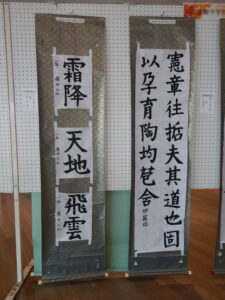 憲章往哲夫其道也固
以孕育陶均苞含
霜降
天地
飛雲
中学校